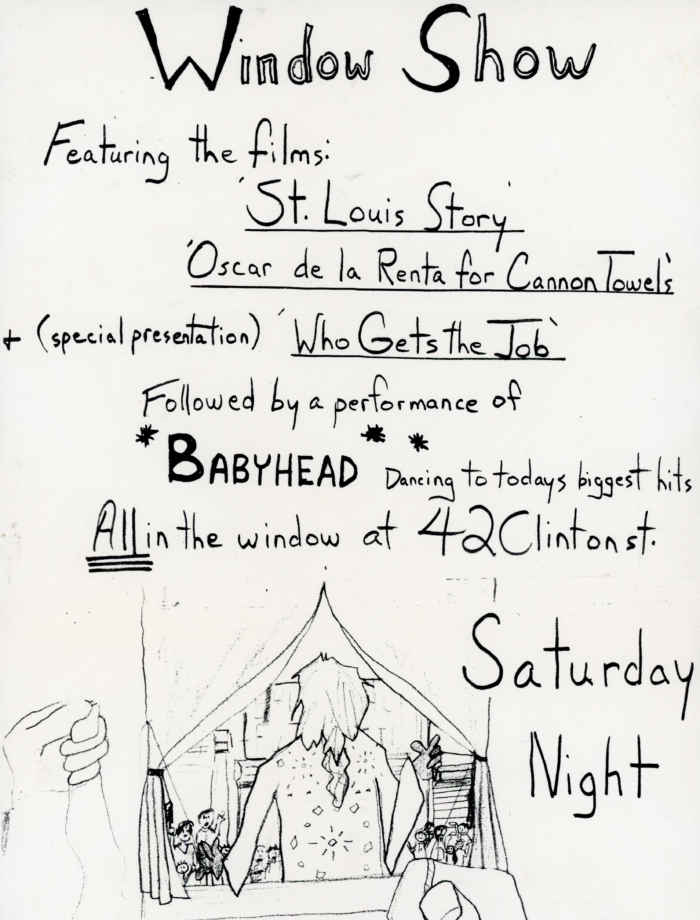 Window Show
Featuring the films:
'St. Louis Story'
'Oscar de la Renta for Cannon Towels'
+ (special presentation) 'Who Gets the Job'
Followed by a performance of
*BABYHEAD** Dancing to todays biggest hits
All in the window at 42 Clinton st.
Saturday
Night